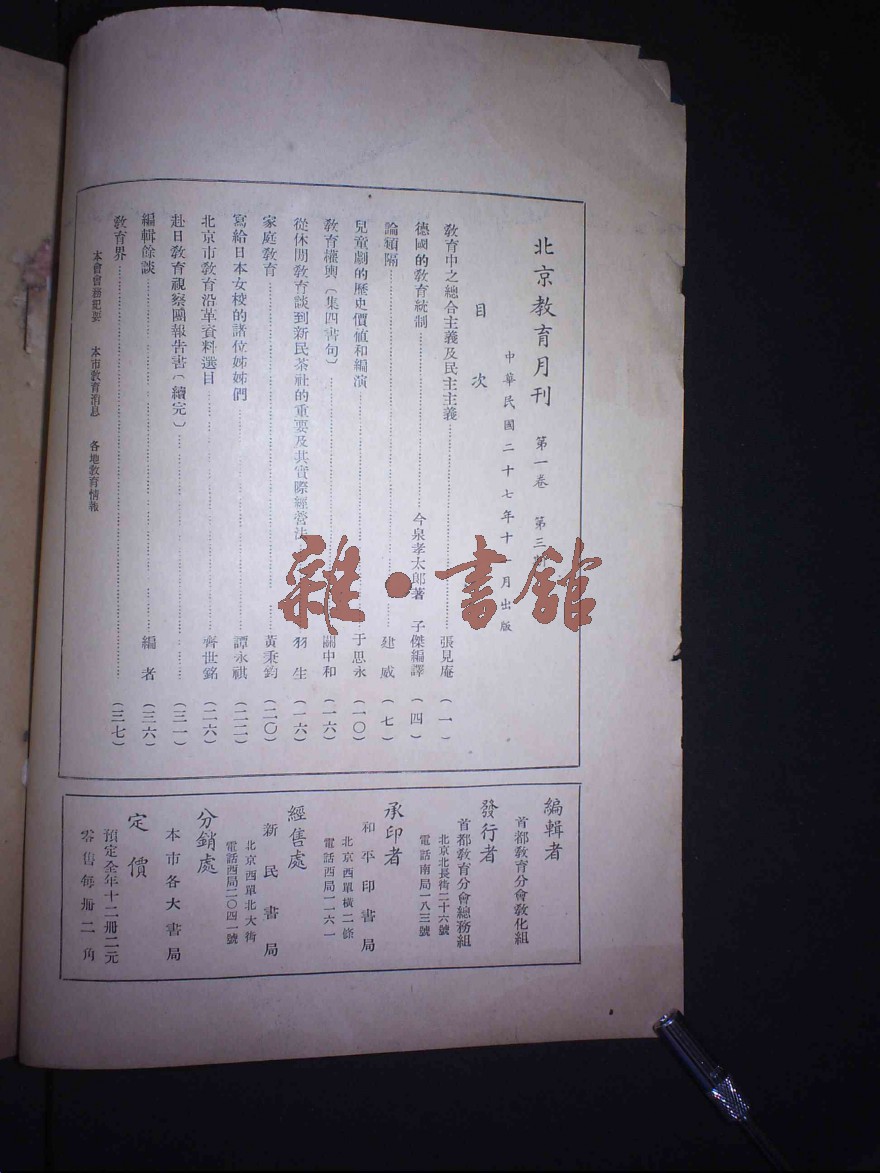 北京教育月刊 第一卷 第三
中華民國二十七年十一月出版
目次
教育中之總合主義及民主主義 張見庵 (一)
德國的教育統制 今泉孝太郎著 子傑編譯 (四)
論頴隔 建威 (七)
兒童劇的歷史價値和編演 于思永 (一〇)
教育權輿(集四書句) 關中和 (一六)
從休閒教育談到新民茶社的重要及其實際經營法 羽生 (一六)
家庭教育 黃秉鈞 (二〇)
寫給日本女校的諸位姊姊們 譚永祺 (二二)
北京市教育沿革資料選目 齊世銘 (二六)
赴日教育視察團報告書(續完) (三一)
編輯餘談 編者 (三六)
教育界 (三七)
本會會務紀要 本市教育消息 各地教育情報
編輯者
首都教育分會教化組
發行者
首都教育分會總務組
北京北長街二十六號
電話南局一八三號
承印者
和平印書局
北京西單橫二條
電話西局一二六一
經售處
新民書局
北京西單北大街
電話西局二〇四一號
分銷處
本市各大書局
定價
預定全年十二册二元
零售每册二角
雜·書館